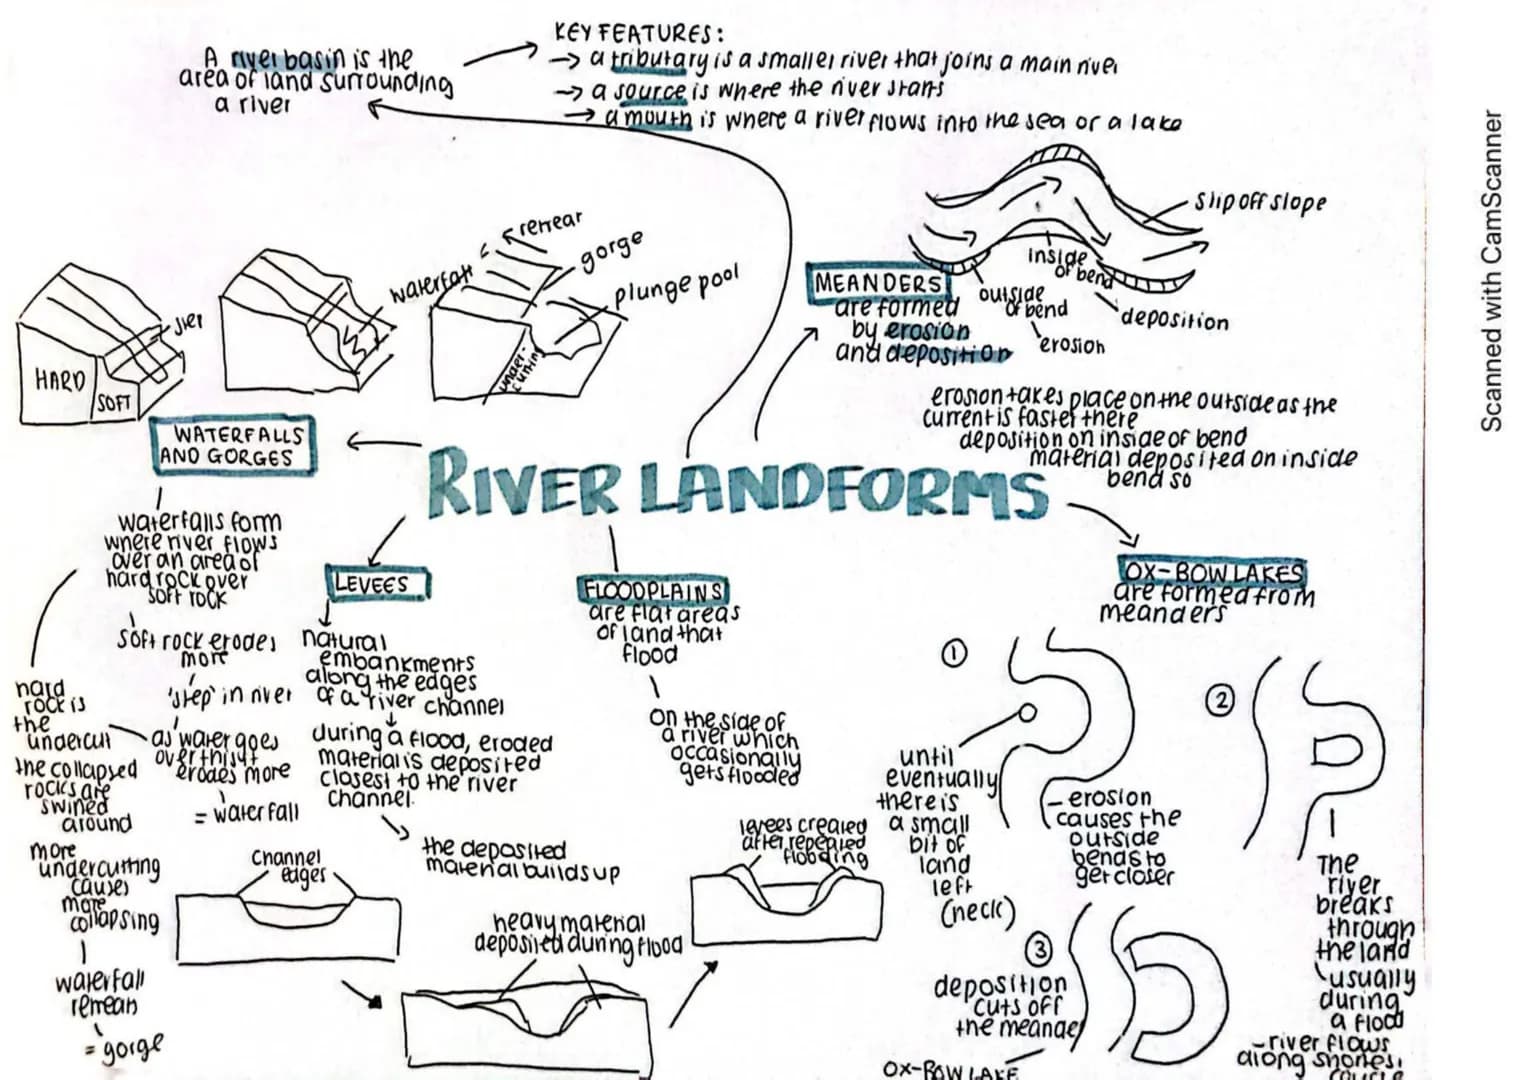 A river basin is the
area of land surrounding
a river
KEY FEATURES:
→ a tributary is a smaller river that joins a main river
→ a source is where the river starts
→ a mouth is where a river flows into the sea or a lake
slip off slope
inside
of bend
outside
of bend
deposition
erosion
MEANDERS
are formed
by erosion
and deposition
erosion takes place on the outside as the
current is faster there
deposition on inside of bend
material deposited on inside
bend so
HARD
SOFT
waterfall
retreat
gorge
plunge pool
under-
cutting
WATERFALLS
AND GORGES
RIVER LANDFORMS
waterfalls form
where river flows
over an area of
hard rock over
soft rock
soft rock erodes
more
'step' in river
as water goes
over this it
erodes more
= waterfall
hard
rock is
the
undercut
the collapsed
rocks are
swined
around
more
undercutting
causes
more
collapsing
waterfall
= gorge
LEVEES
natural
embankments
along the edges
of a river channel
during a flood, eroded
material is deposited
closest to the river
channel.
the deposited
material builds up
channel
edges
heavy material
deposited during flood
levees created
after repeated
flooding
FLOODPLAINS
are flat areas
of land that
flood
on the side of
a river which
occasionally
gets flooded
OX-BOW LAKES
are formed from
meanders
1
until
eventually
there is
a small
bit of
land
left
(neck)
- erosion
causes the
outside
bends to
get closer
2
The
river
breaks
through
the land
usually
during
a flood
- river flows
along
3
deposition
cuts off
the meander
OX-BOW LAKE
Scanned with CamScanner